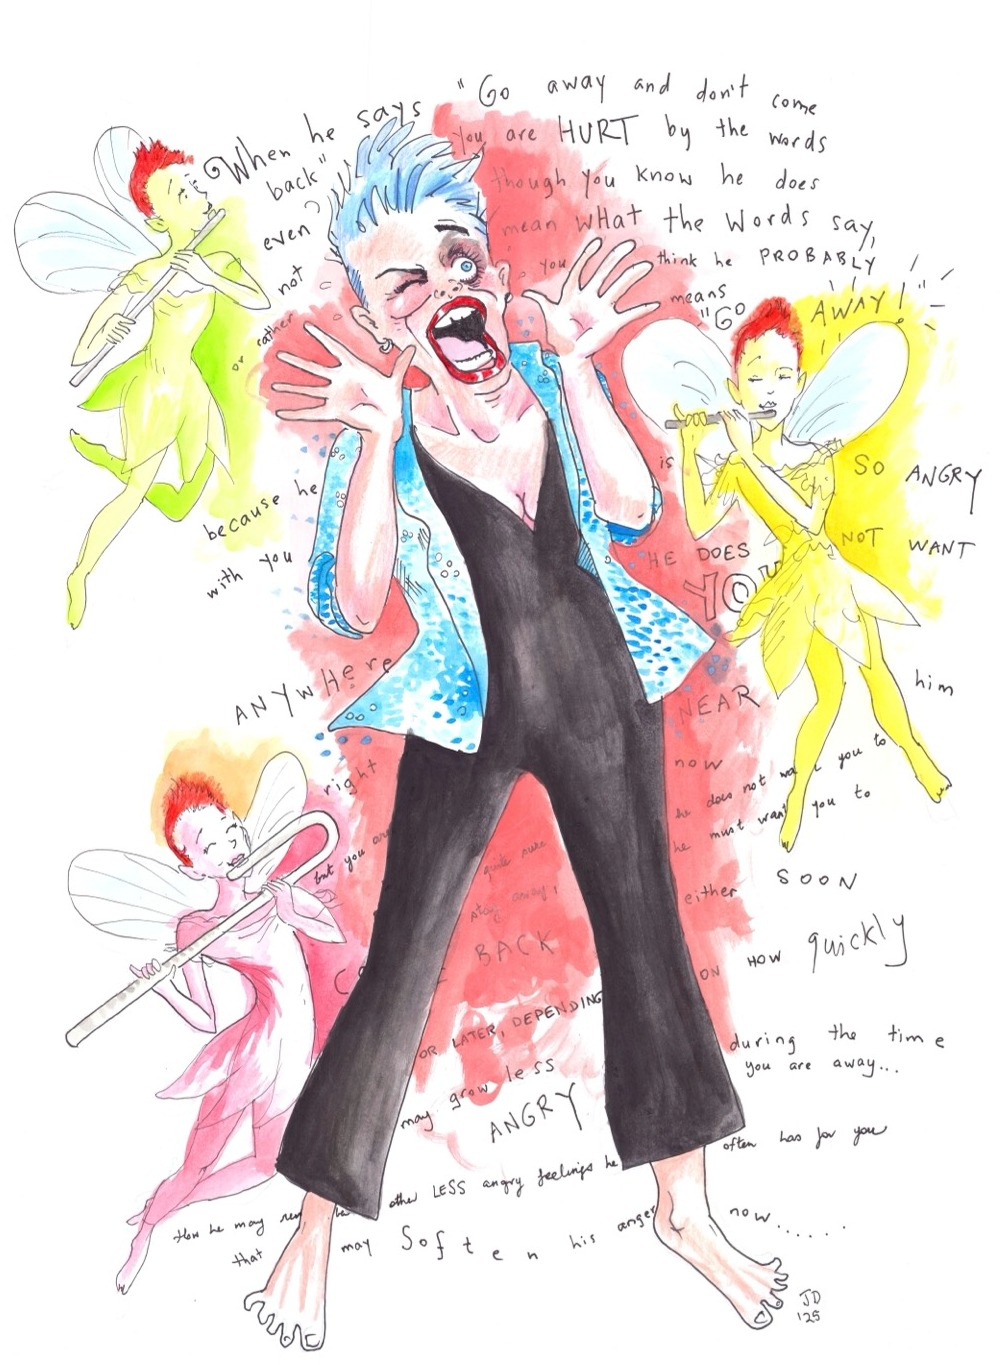 When he says "Go away and don't come
back" You are HURT by the words
even though you know he does
not mean WHAT the Words say,
Or rather you think he PROBABLY
means
"GO AWAY!"
because he is SO ANGRY
with you HE DOES NOT WANT
YOU
ANYWHere NEAR him
right now
but you are quite sure he does not want you to
stay away, he must want you to
COME BACK either SOON
OR LATER, DEPENDING ON HOW quickly
may grow less during the time
ANGRY you are away...
How he may other LESS angry feelings he often has for you
that may Soften his anger now......
JD
'25